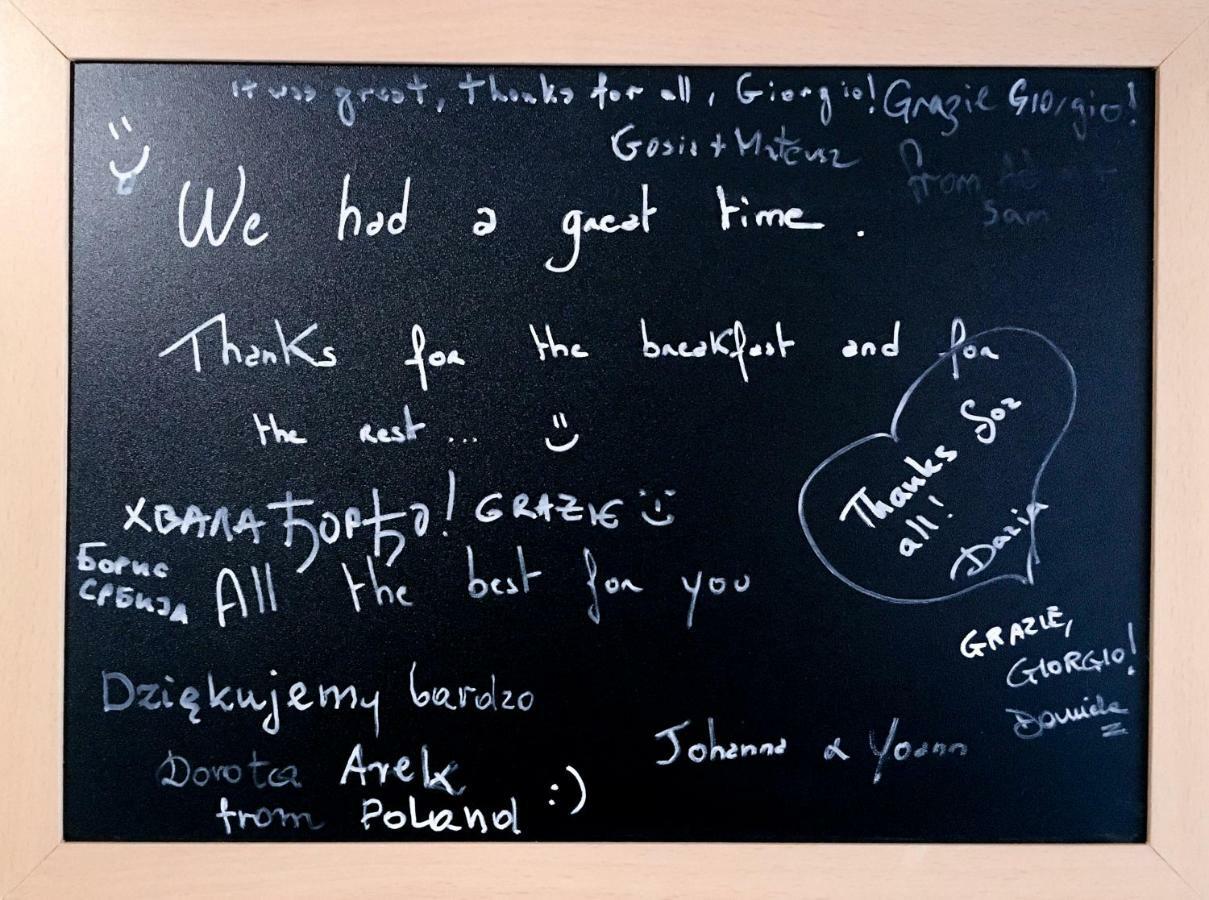 It was great, thanks for all, Giorgio!
Gosia + Mateusz
Grazie Giorgio!
from
sam
We had a great time.
Thanks for the breakfast and for
the rest...
Thanks for
all!
Dazia
ХВАЛА ЂОРЂО! GRAZIE
БОРИС
СРБИЈА
All the best for you
GRAZIE,
GIORGIO!
Davide
Dziękujemy bardzo
Dorota Arek
from Poland :)
Johanna & Yoann